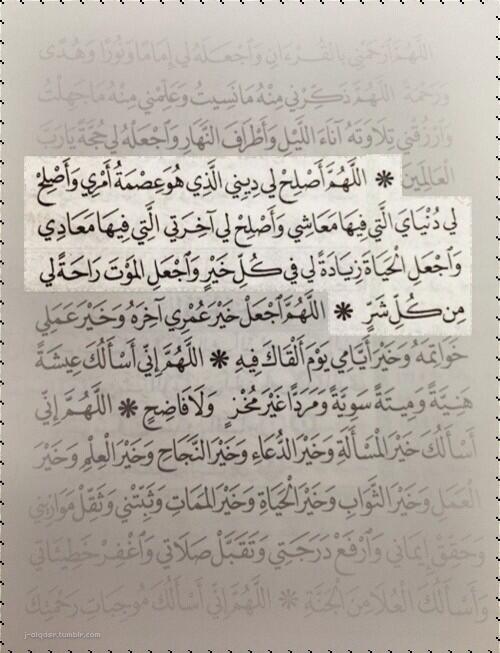 اللَّهُمَّ ٱرْحَمْنِي بالقُرْءَانِ وَٱجْعَلهُ لِي إِمَامًا وَنُورًا وَهُدًى
وَرَحْمَةً اللَّهُمَّ ذَكِّرْنِي مِنْهُ مَانَسِيتُ وَعَلِّمْنِي مِنْهُ مَاجَهِلْتُ
وَٱرْزُقْنِي تِلَاوَتَهُ آنَاءَ اللَّيْلِ وَأَطْرَافَ النَّهَارِ وَٱجْعَلْهُ لِي حُجَّةً يَارَبَّ
العَالَمِينَ * اللَّهُمَّ أَصْلِحْ لِي دِينِي الَّذِي هُوَ عِصْمَةُ أَمْرِي وَأَصْلِحْ
لِي دُنْيَايَ الَّتِي فِيهَا مَعَاشِي وَأَصْلِحْ لِي آخِرَتِي الَّتِي فِيهَا مَعَادِي
وَٱجْعَلِ الْحَيَاةَ زِيَادَةً لِي فِي كُلِّ خَيْرٍ وَٱجْعَلِ المَوْتَ رَاحَةً لِي
مِن كُلِّ شَرٍّ * اللَّهُمَّ ٱجْعَلْ خَيْرَ عُمْرِي آخِرَهُ وَخَيْرَ عَمَلِي
خَوَاتِمَهُ وَخَيْرَ أَيَّامِي يَوْمَ أَلْقَاكَ فِيهِ * اللَّهُمَّ إِنِّي أَسْأَلُكَ عِيشَةً
هَنِيَّةً وَمِيتَةً سَوِيَّةً وَمَرَدًّا غَيْرَ مُخْزٍ وَلَا فَاضِحٍ * اللَّهُمَّ إِنِّي
أَسْأَلُكَ خَيْرَ الْمَسْأَلَةِ وَخَيْرَ الدُّعَاءِ وَخَيْرَ النَّجَاحِ وَخَيْرَ الْعِلْمِ وَخَيْرَ
الْعَمَلِ وَخَيْرَ الثَّوَابِ وَخَيْرَ الْحَيَاةِ وَخَيْرَ المَمَاتِ وَثَبِّتْنِي وَثَقِّلْ مَوَازِينِي
وَحَقِّقْ إِيمَانِي وَٱرْفَعْ دَرَجَتِي وَتَقَبَّلْ صَلَاتِي وَٱغْفِرْ خَطِيئَاتِي
وَأَسْأَلُكَ الْعُلَا مِنَ الْجَنَّةِ * اللَّهُمَّ إِنِّي أَسْأَلُكَ مُوجِبَاتِ رَحْمَتِكَ
j-alqdsr.tumblr.com